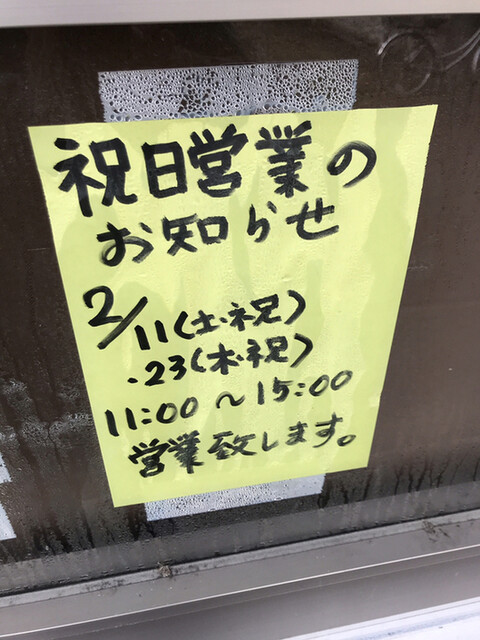 祝日営業の
お知らせ
2/11(土・祝)
・23(木・祝)
11:00～15:00
営業致します。